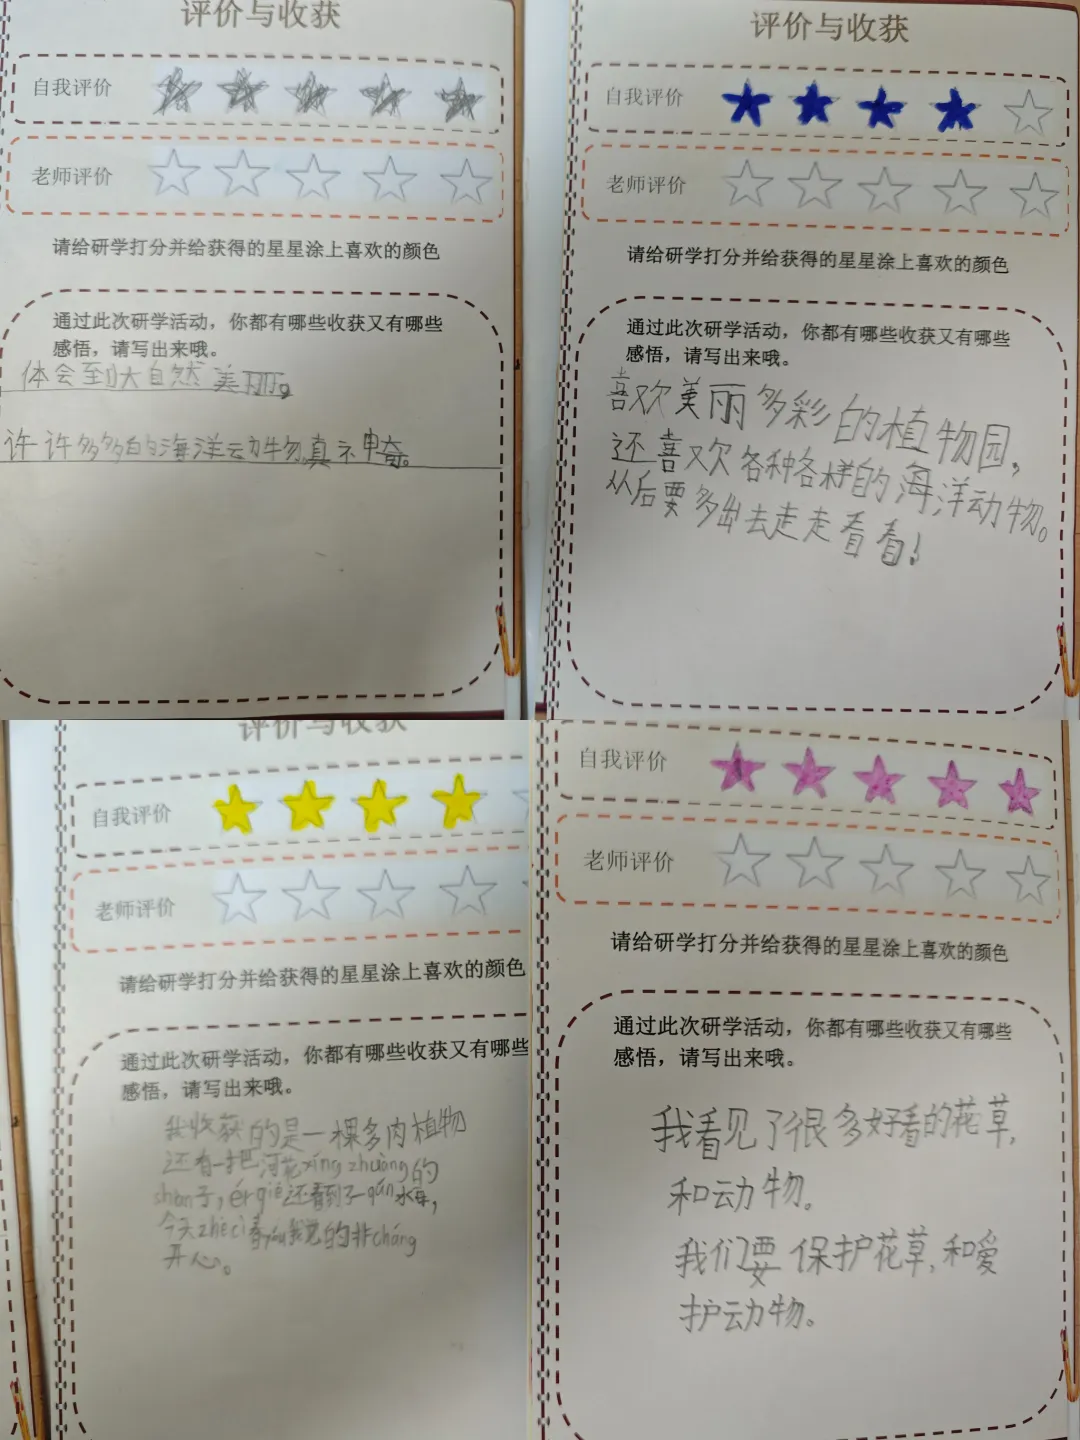 评价与收获
自我评价
老师评价
请给研学打分并给获得的星星涂上喜欢的颜色
通过此次研学活动，你都有哪些收获又有哪些
感悟，请写出来哦。
体会到大自然美丽。
许许多多的海洋动物真示申奇。
评价与收获
自我评价
老师评价
请给研学打分并给获得的星星涂上喜欢的颜色
通过此次研学活动，你都有哪些收获又有哪些
感悟，请写出来哦。
喜欢美丽多彩的植物园，
还喜欢各种各样的海洋动物。
从后要多出去走走看看！
评价与收获
自我评价
老师评价
请给研学打分并给获得的星星涂上喜欢的颜色
通过此次研学活动，你都有哪些收获又有哪些
感悟，请写出来哦。
我收获的是一棵多肉植物
还有一把河花xíng zhuàng的
shàn子，ér qiě还看到了一qún水母，
今天zhè cì春yóu我觉的非cháng
开心。
自我评价
老师评价
请给研学打分并给获得的星星涂上喜欢的颜色
通过此次研学活动，你都有哪些收获又有哪些
感悟，请写出来哦。
我看见了很多好看的花草，
和动物。
我们要保护花草，和爱
护动物。